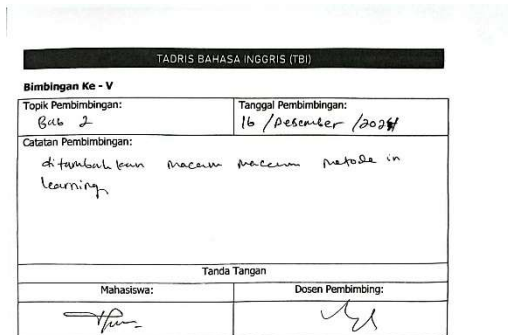 TADRIS BAHASA INGGRIS (TBI)
Bimbingan Ke - V
Topik Pembimbingan:
Bab 2
Tanggal Pembimbingan:
16 / Desember / 2024
Catatan Pembimbingan:
ditambahkan macam macam metode in
learning
Tanda Tangan
Mahasiswa:
Dosen Pembimbing: